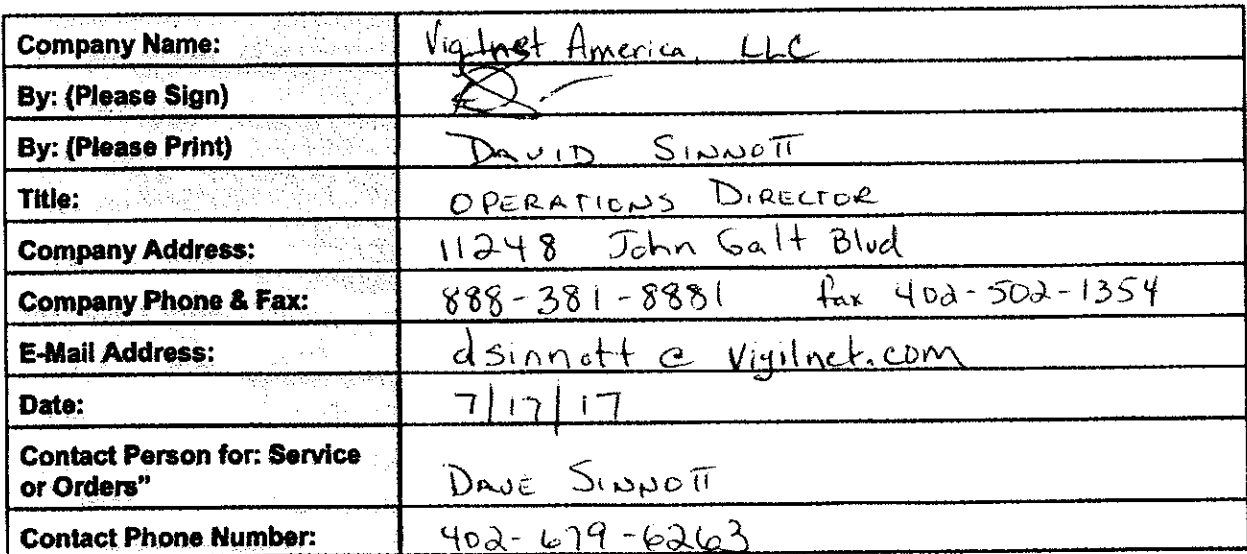 Company Name: Vigilnet America, LLC
By: (Please Sign)
By: (Please Print) DAVID SINNOTT
Title: OPERATIONS DIRECTOR
Company Address: 11248 John Galt Blvd
Company Phone & Fax: 888-381-8881 fax 402-502-1354
E-Mail Address: dsinnott @ Vigilnet.com
Date: 7/17/17
Contact Person for: Service
or Orders" DAVE SINNOTT
Contact Phone Number: 402-679-6263